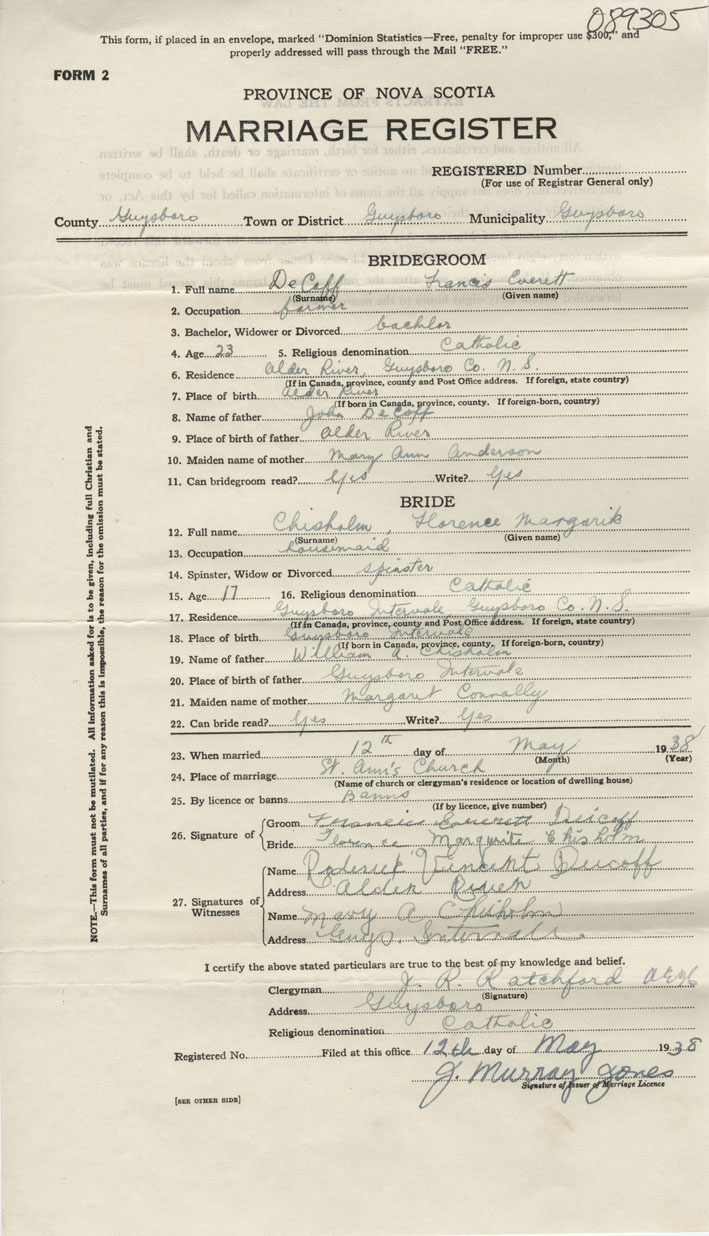 089305
This form, if placed in an envelope, marked "Dominion Statistics—Free, penalty for improper use $300," and
properly addressed will pass through the Mail "FREE."
FORM 2
PROVINCE OF NOVA SCOTIA
MARRIAGE REGISTER
REGISTERED Number
(For use of Registrar General only)
County Guysboro Town or District Guysboro Municipality Guysboro
BRIDEGROOM
1. Full name DeCoff Francis Everett
(Surname) (Given name)
2. Occupation farmer
3. Bachelor, Widower or Divorced bachlor
4. Age 23 5. Religious denomination Catholic
6. Residence Alder River, Guysboro Co. N.S.
(If in Canada, province, county and Post Office address. If foreign, state country)
7. Place of birth Alder River
(If born in Canada, province, county. If foreign-born, country)
8. Name of father John DeCoff
9. Place of birth of father Alder River
10. Maiden name of mother Mary Ann Anderson
11. Can bridegroom read? Yes Write? Yes
BRIDE
12. Full name Chisholm, Florence Margarite
(Surname) (Given name)
13. Occupation housemaid
14. Spinster, Widow or Divorced spinster
15. Age 17 16. Religious denomination Catholic
17. Residence Guysboro Intervale Guysboro Co. N.S.
(If in Canada, province, county and Post Office address. If foreign, state country)
18. Place of birth Guysboro Intervale
(If born in Canada, province, county. If foreign-born, country)
19. Name of father William A. Chisholm
20. Place of birth of father Guysboro Intervale
21. Maiden name of mother Margaret Connolly
22. Can bride read? Yes Write? Yes
23. When married 12th day of May 1938
(Month) (Year)
24. Place of marriage St. Ann's Church
(Name of church or clergyman's residence or location of dwelling house)
25. By licence or banns Banns
(If by licence, give number)
26. Signature of
Groom Francis Everett Deicoff
Bride Florence Margurite Chisholm
27. Signatures of Witnesses
Name Roderick Vincent Deicoff
Address Alder River
Name Mary A Chisholm
Address Guys. Intervale
I certify the above stated particulars are true to the best of my knowledge and belief.
Clergyman J. R. Ratchford
(Signature)
Address Guysboro
Religious denomination Catholic
Registered No. Filed at this office 12th day of May 1938
J. Murray Jones
Signature of Issuer of Marriage Licence
[SEE OTHER SIDE]
NOTE.—This form must not be mutilated. All information asked for is to be given, including full Christian and
Surnames of all parties, and if for any reason this is impossible, the reason for the omission must be stated.